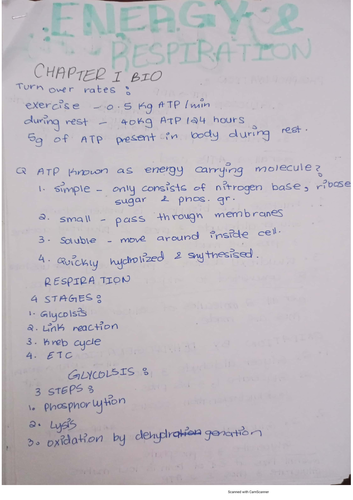 ENERGY &
RESPIRATION
CHAPTER I BIO
Turn over rates :
exercise - 0.5 Kg ATP/min
during rest - 40Kg ATP/24 hours
5g of ATP present in body during rest.
Q ATP known as energy carrying molecule?
1. simple - only consists of nitrogen base, ribose
sugar & phos. gr.
2. small - pass through membranes
3. Soluble - move around inside cell.
4. Quickly hydrolized & snythesised.
RESPIRATION
4 STAGES :
1. Glycolsis
2. Link reaction
3. Kreb cycle
4. ETC
GLYCOLSIS :
3 STEPS :
1. Phosphorlytion
2. Lysis
3. oxidation by dehydration genation
Scanned with CamScanner